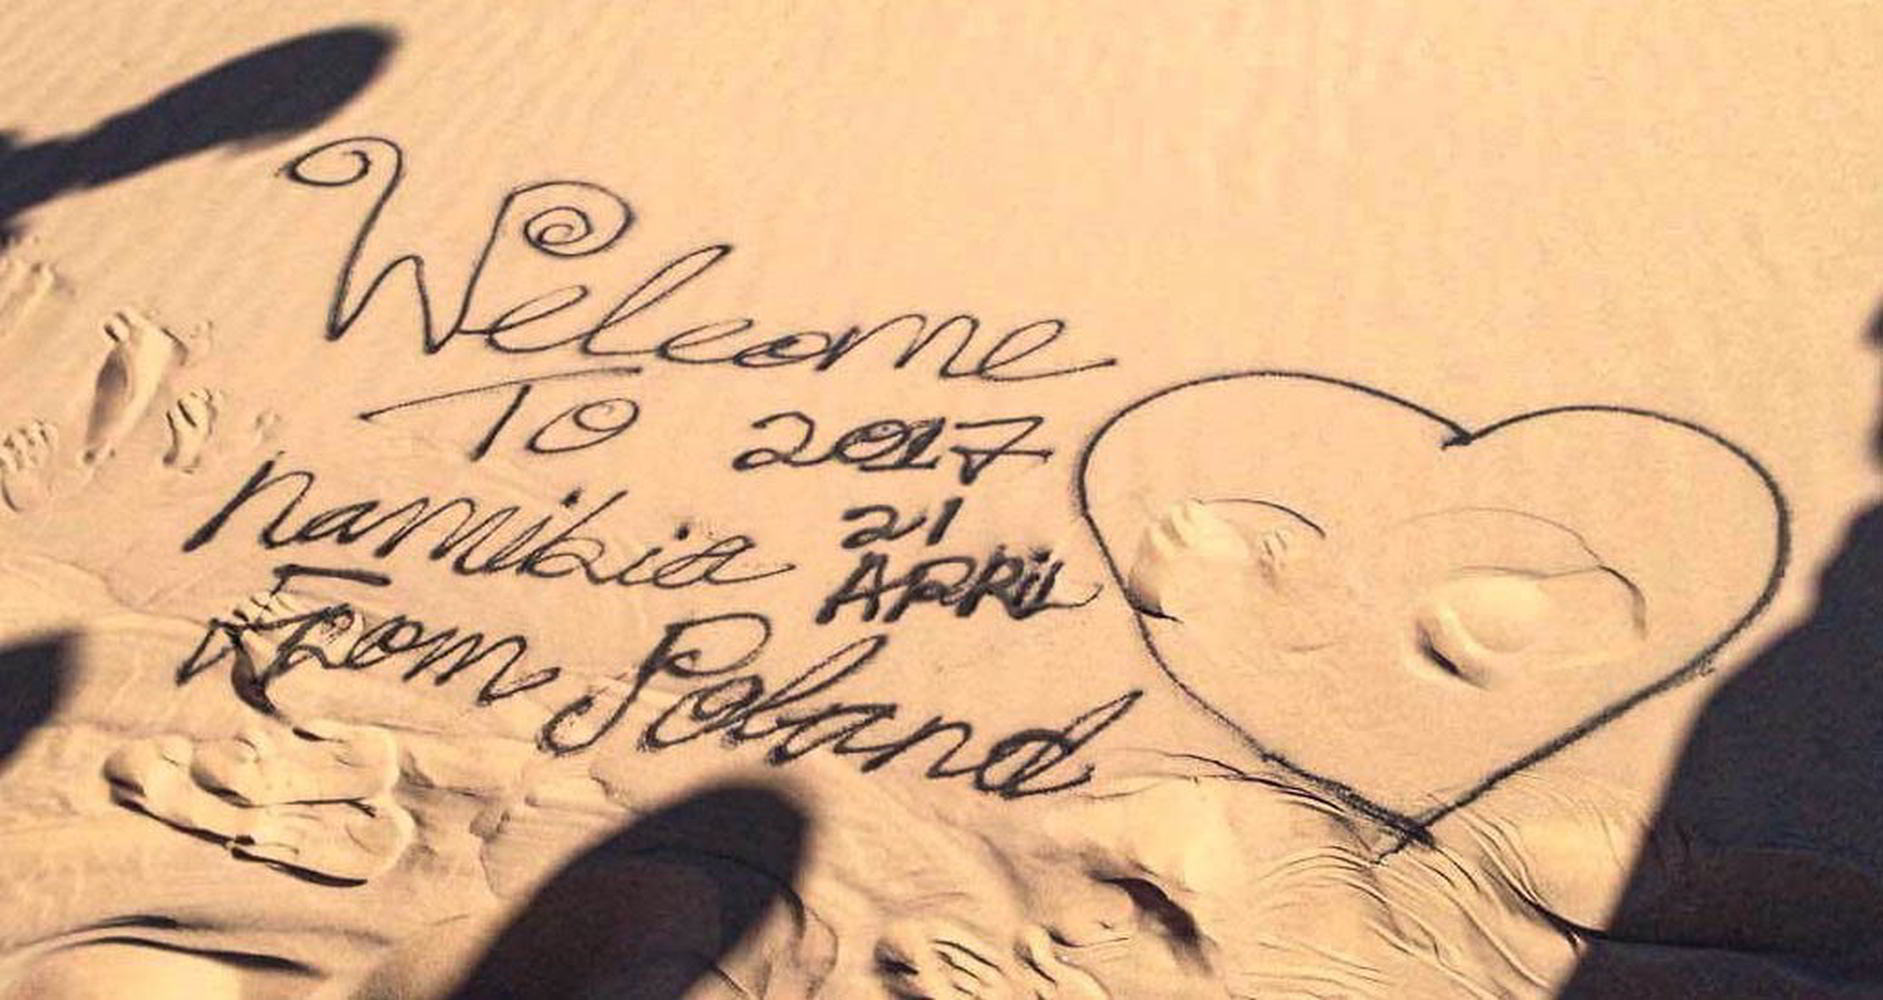 Welcome
To
Namibia
From Poland
2017
21
APRIL